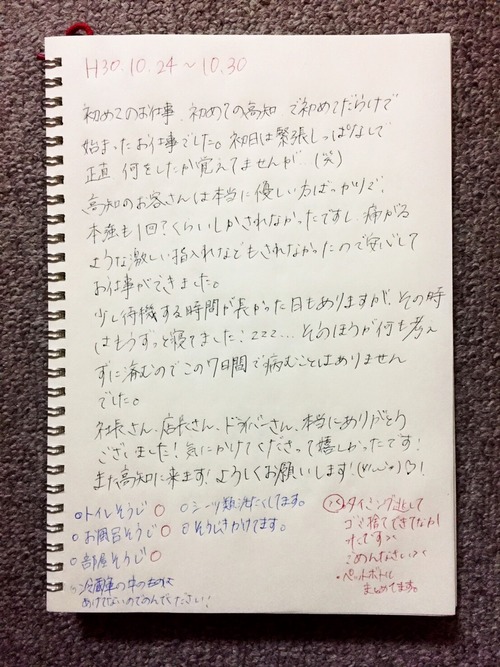 H30.10.24〜10.30
初めてのお仕事、初めての高知 で初めてだらけで
始まったお仕事でした。初日は緊張しっぱなしで
正直 何をしたか覚えてませんが (笑)
高知のお客さんは本当に優しい方ばっかりで、
本強も1回?くらいしかされなかったですし、痛がる
ような激しい指入れなどもされなかったので安心して
お仕事ができました。
少し待機する時間が長かった日もありますが、その時
はもうずっと寝てました!zzz... そのほうが何も考え
ずに済むのでこの7日間で病むことはありません
でした。
社長さん、店長さん、ドライバーさん、本当にありがとう
ございました!気にかけてくださって嬉しかったです!
また高知に来ます!よろしくお願いします!
○トイレそうじ○
○お風呂そうじ○
○部屋そうじ○
○冷蔵庫の中のお水
あけてないのでのんでください!
○シーツ類洗たくしてます。
○そうじきかけてます。
タイミング逃して
ゴミ捨てできてなか
ったです××
ごめんなさい××
・ペットボトル
まとめてます。